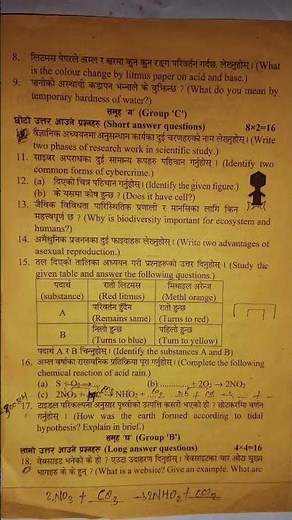 8. लिटमस पेपरले अम्ल र क्षारमा कुन कुन रङ्ग परिवर्तन गर्दछ, लेख्नुहोस्। (What
is the colour change by litmus paper on acid and base.)
9. पानीको अस्थायी कडापन भन्नाले के बुझिन्छ ? (What do you mean by
temporary hardness of water?)
समूह 'ग' (Group 'C')
छोटो उत्तर आउने प्रश्नहरु (Short answer questions) 8×2=16
वैज्ञानिक अध्ययनमा अनुसन्धान कार्यका दुई चरणहरुको नाम लेख्नुहोस्। (Write
two phases of research work in scientific study.)
11. साइबर अपराधका दुई सामान्य रूपहरु पहिचान गर्नुहोस्। (Identify two
common forms of cybercrime.)
12. (a) दिएको चित्र पहिचान गर्नुहोस्। (Identify the given figure.)
(b) के यसमा कोष हुन्छ ? (Does it have cell?)
13. जैविक विविधता पारिस्थितिक प्रणाली र मानसिका लागि किन
महत्त्वपूर्ण छ ? (Why is biodiversity important for ecosystem and
humans?)
14. अमैथुनिक प्रजननका दुई फाइदाहरू लेख्नुहोस्। (Write two advantages of
asexual reproduction.)
15. तल दिएको तालिका अध्ययन गरी प्रश्नहरूको उत्तर दिनुहोस्। (Study the
given table and answer the following questions.)
पदार्थ रातो लिटमस मिथाइल अरेन्ज
(substance) (Red litmus) (Methl orange)
A परिवर्तन हुँदैन रातो हुन्छ
(Remains same) (Turns to red)
B निलो हुन्छ पहेँलो हुन्छ
(Turns to blue) (Turn to yellow)
पदार्थ A र B चिन्नुहोस्। (Identify the substances A and B)
16. अम्ल वर्षाका रासायनिक प्रतिक्रिया पूरा गर्नुहोस्। (Complete the following
chemical reaction of acid rain.)
(a) S + O₂ → (b) ............ + 2O₂ → 2NO₂
(c) 2NO₂ + → NHO₂ +
17. टाइडल परिकल्पनाअनुसार पृथ्वीको उत्पत्ति कसरी भएको हो ? छोटकरीमा वर्णन
गर्नुहोस्। (How was the earth formed according to tidal
hypothesis? Explain in brief.)
समूह 'घ' (Group 'B')
लामो उत्तर आउने प्रश्नहरु (Long answer questions) 4×4=16
18. वेबसाइट भनेको के हो ? एउटा उदाहरण दिनुहोस्। वेबसाइटका चार ओटा मुख्य
भागहरु के के हुन् ? (What is a website? Give an example. What are